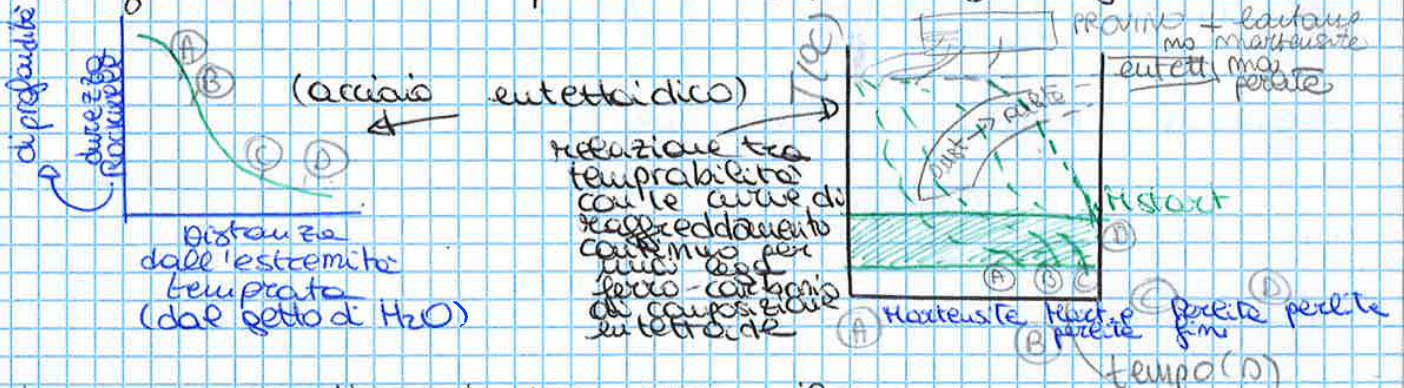 di profondità
durezza
Rockwell
A
B
C
D
Distanza
dall'estremità
temprata
(dal getto di H2O)
(acciaio eutettoidico)
relazione tra
temprabilità
con le curve di
raffreddamento
continuo per
una lega
ferro-carbonio
di composizione
eutettoide
T(°C)
PROVINO + lontano
no martensite
eutett. ma
perlite
aust → perlite
Mstart
D
A B C
A Martensite
B Mart. e
perlite
C perlite
fine
D perlite
tempo(s)